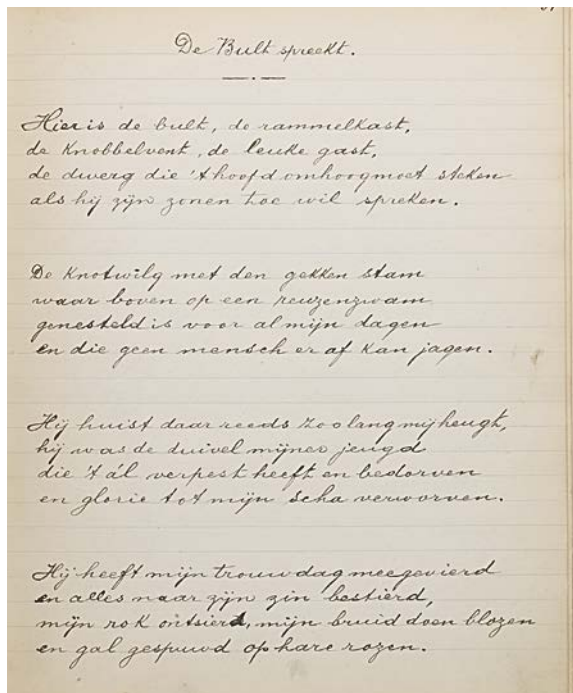 De Bult spreekt.
Hier is de bult, de rammelkast,
de knobbelvent, de leuke gast,
de dwerg die 't hoofd omhoog moet steken
als hij zijn zonen toe wil spreken.
De Knotwilg met den gekken stam
waar boven op een reuzenzwam
genesteld is voor al mijn dagen
en die geen mensch er af kan jagen.
Hij huist daar reeds zoo lang mij heugt,
hij was de duivel mijner jeugd
die 't ál verpest heeft en bedorven
en glorie tot mijn scha verworven.
Hij heeft mijn trouwdag meegevierd
en alles naar zijn zin bestierd,
mijn rok ontsierd, mijn bruid doen blozen
en gal gespuwd op hare rozen.